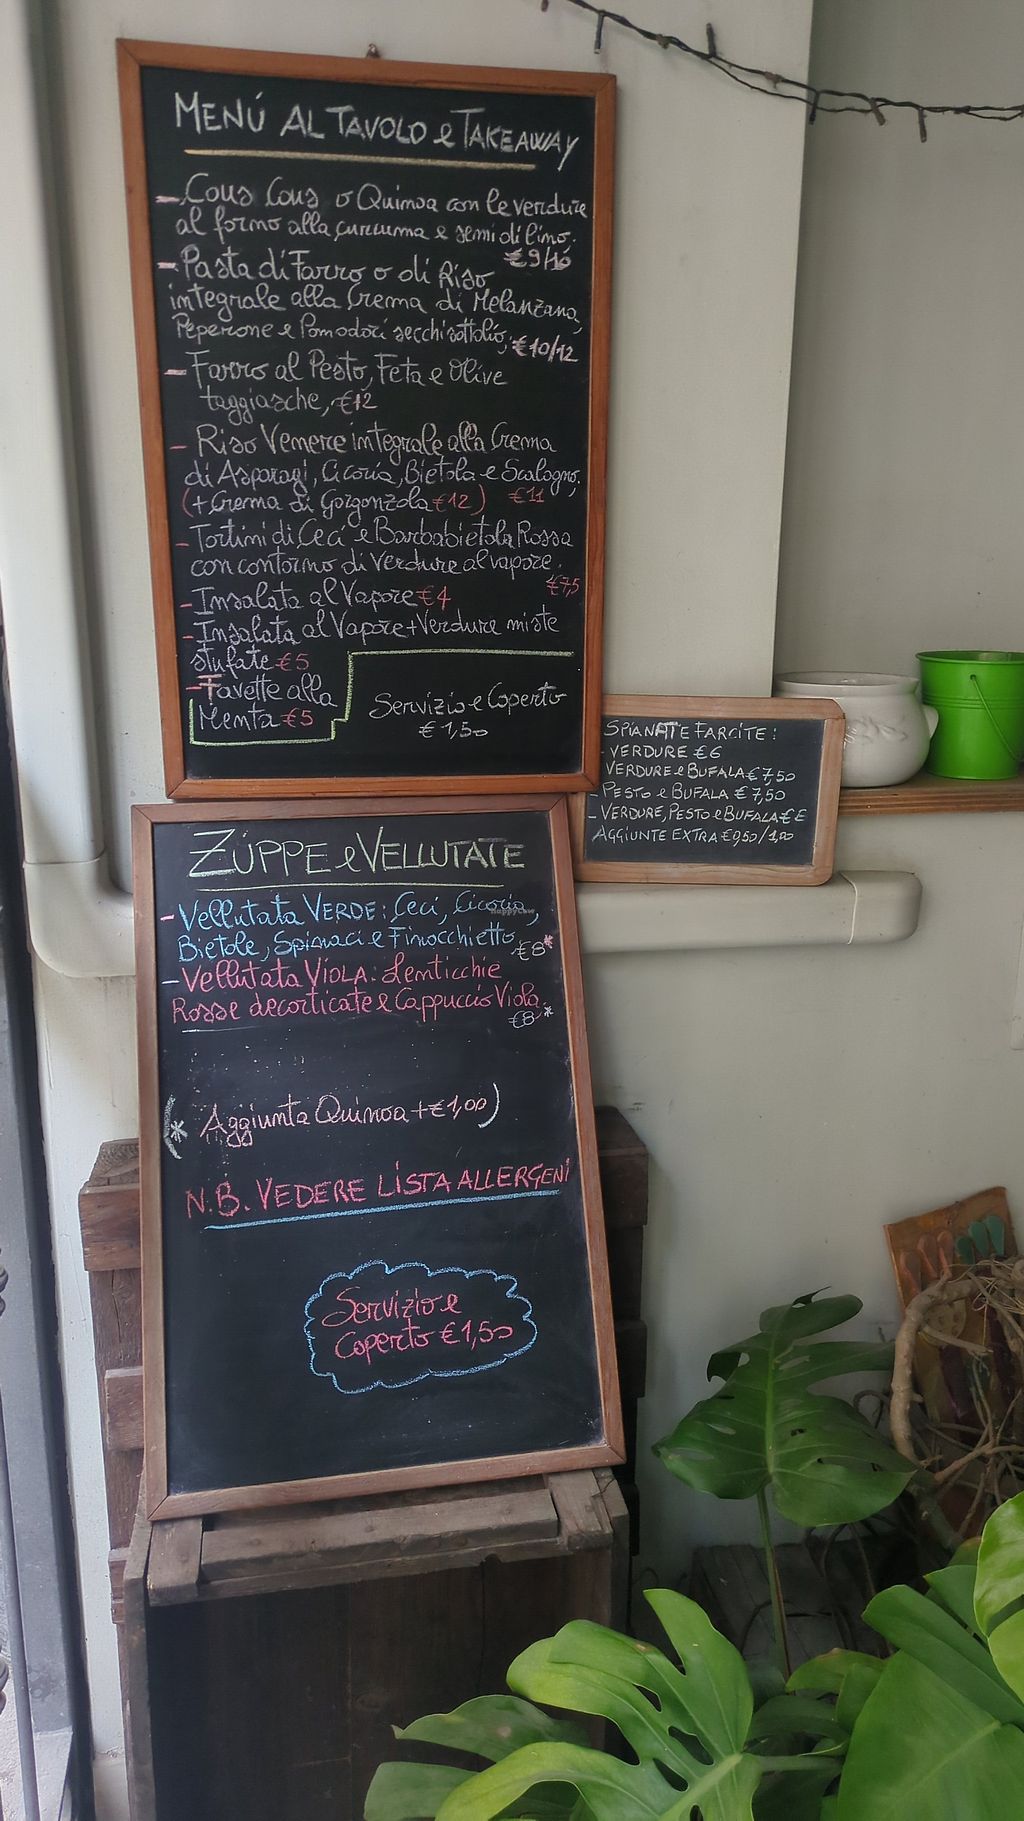 MENÚ AL TAVOLO e TAKEAWAY
- Cous Cous o Quinoa con le verdure
al forno alla curcuma e semi di lino.
€9/10
- Pasta di Farro o di Riso
integrale alla Crema di Melanzana,
Peperone e Pomodori secchi sottolio,
€10/12
- Farro al Pesto, Feta e Olive
taggiasche, €12
- Riso Venere integrale alla Crema
di Asparagi, Cicoria, Bietola e Scalogno,
(+ Crema di Gorgonzola €12) €11
- Tortini di Ceci e Barbabietola Rossa
con contorno di Verdure al vapore.
€7,5
- Insalata al Vapore €4
- Insalata al Vapore + Verdure miste
stufate €5
- Favette alla
Menta €5
Servizio e Coperto
€ 1,50
SPIANATE FARCITE:
- VERDURE €6
VERDURE e BUFALA €7,50
- PESTO e BUFALA €7,50
- VERDURE, PESTO e BUFALA €
AGGIUNTE EXTRA €0,50/1,00
ZUPPE e VELLUTATE
- Vellutata VERDE: Ceci, Cicoria,
Bietole, Spinaci e Finocchietto
€8*
- Vellutata VIOLA: Lenticchie
Rosse decorticate e Cappuccio Viola
€8*
(* Aggiunta Quinoa + €1,00)
N.B. VEDERE LISTA ALLERGENI
Servizio e
Coperto €1,50